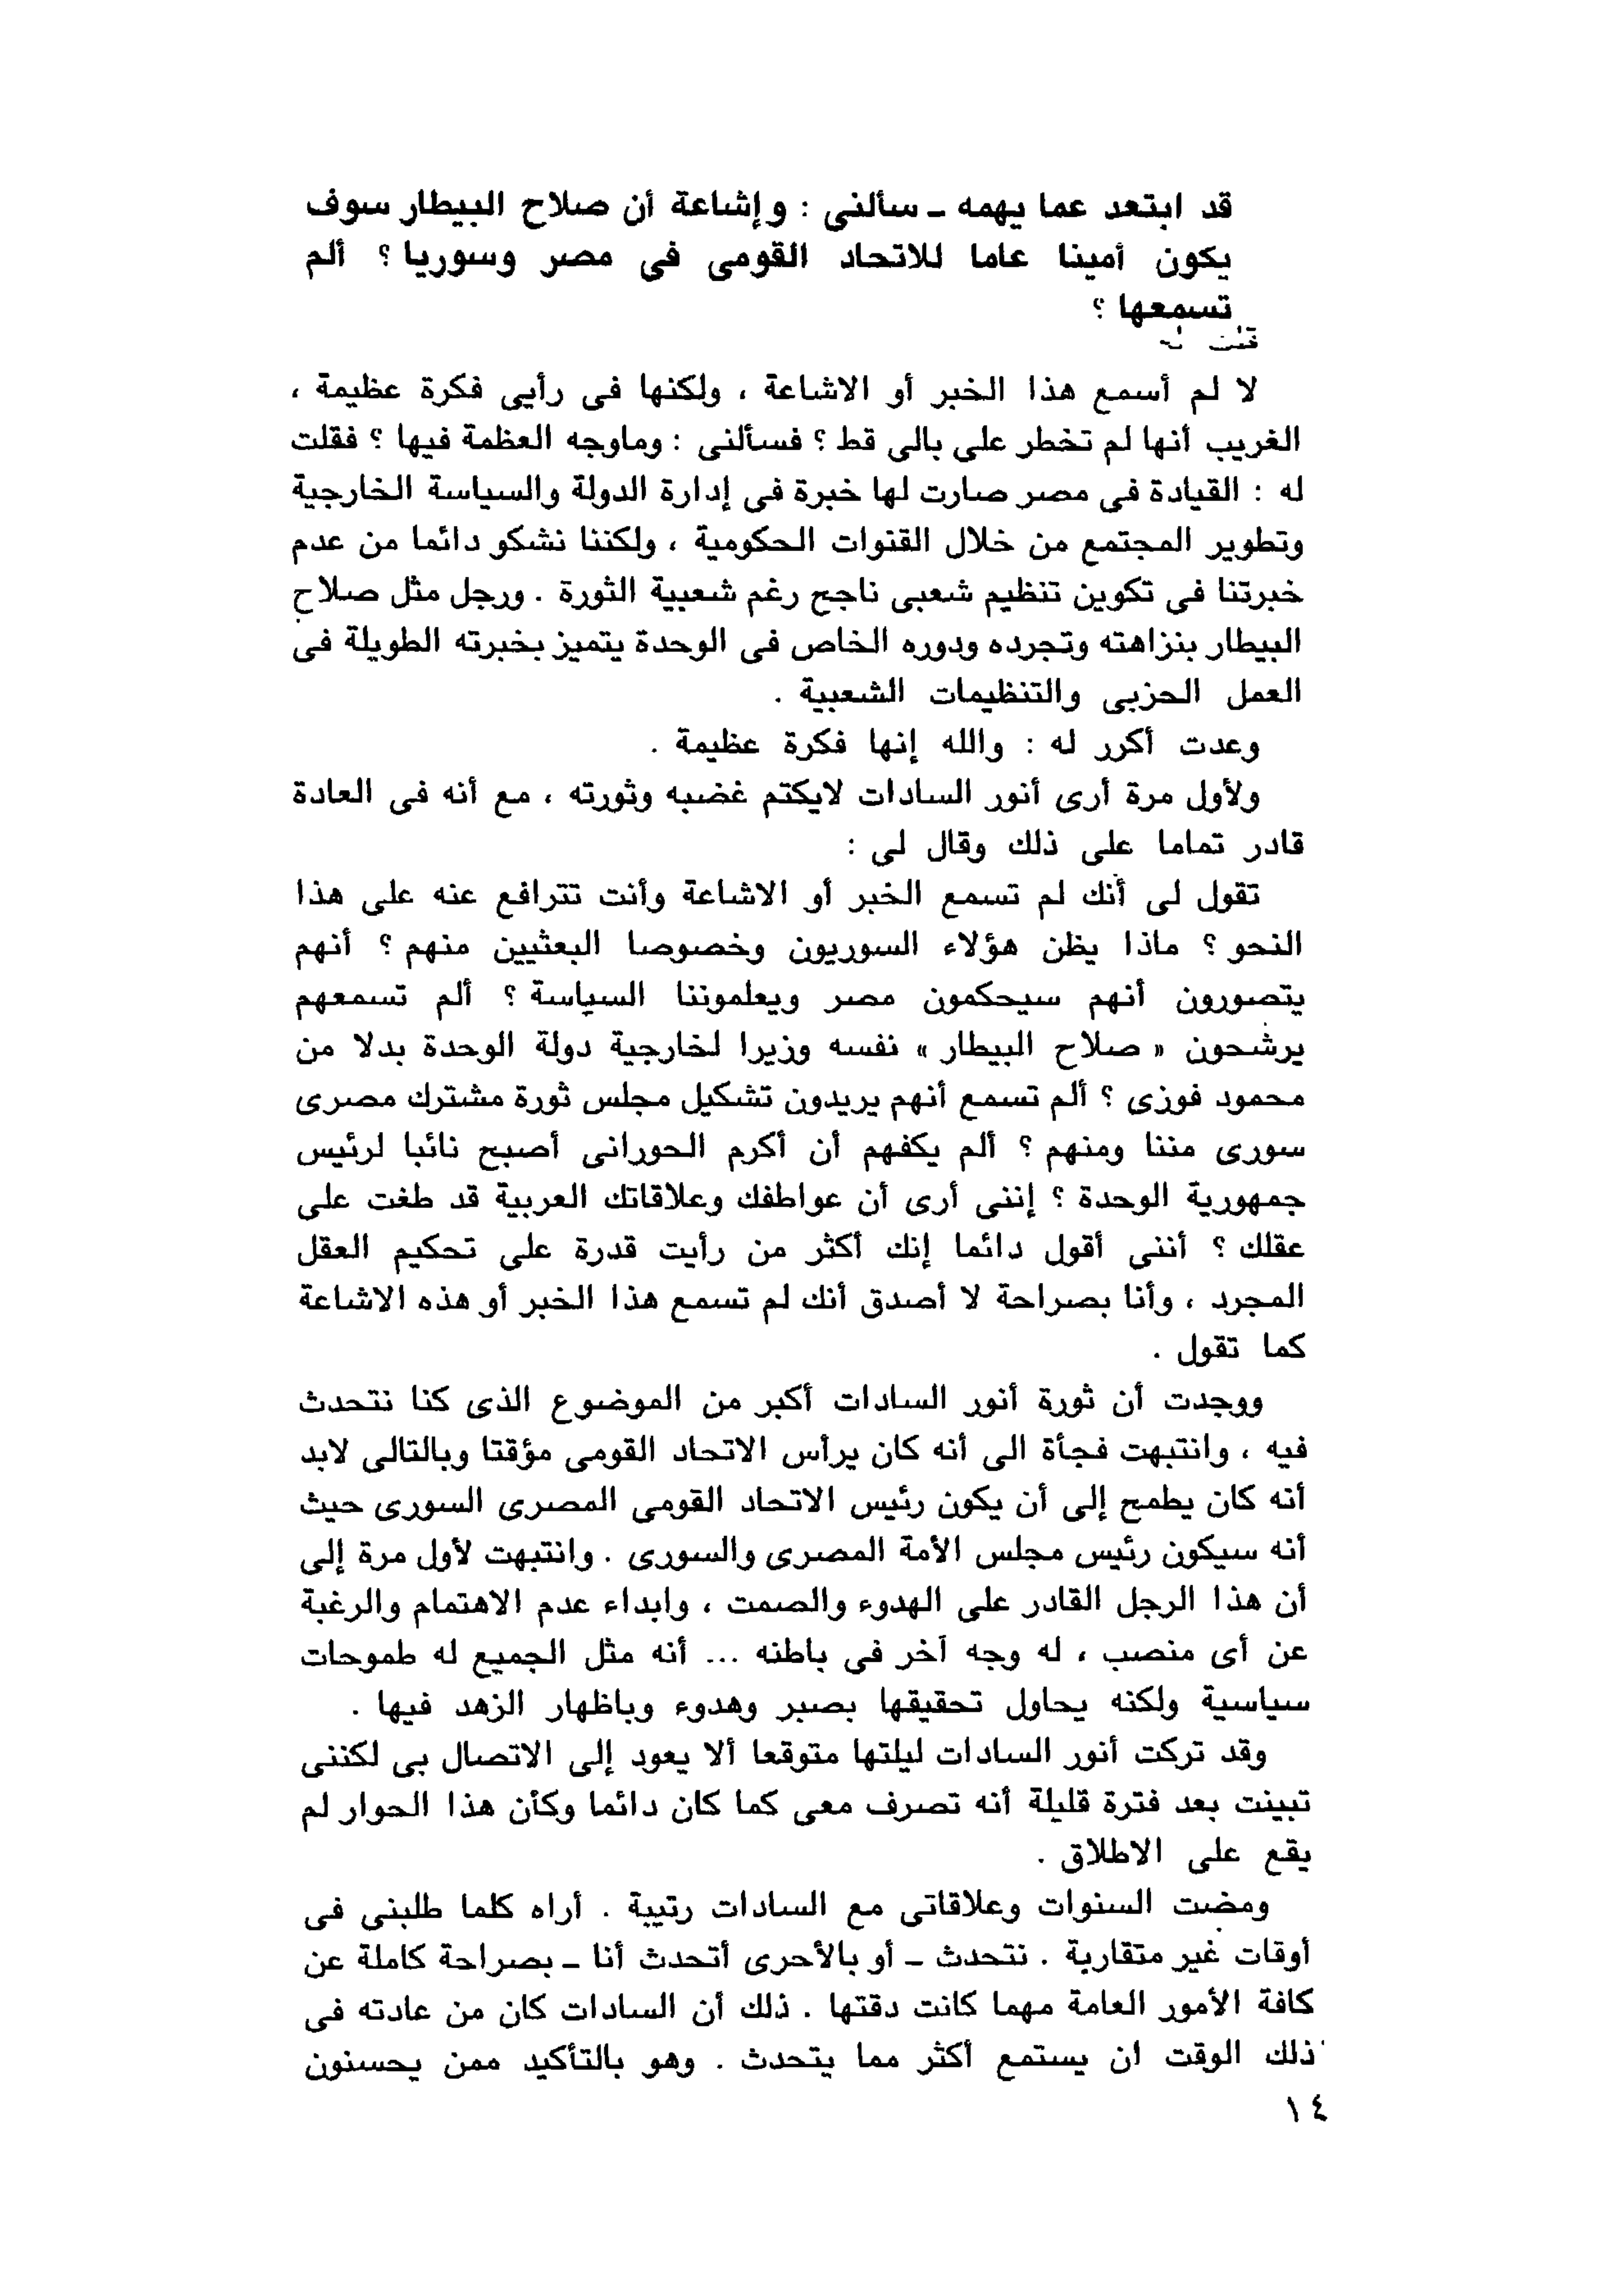 قد ابتعد عما يهمه ـ سألنى : وإشاعة أن صلاح البيطار سوف
يكون أمينا عاما للاتحاد القومى فى مصر وسوريا ؟ ألم
تسمعها ؟
قلت له
لا لم أسمع هذا الخبر أو الاشاعة ، ولكنها فى رأيى فكرة عظيمة ،
الغريب أنها لم تخطر على بالى قط ؟ فسألنى : وماوجه العظمة فيها ؟ فقلت
له : القيادة فى مصر صارت لها خبرة فى إدارة الدولة والسياسة الخارجية
وتطوير المجتمع من خلال القنوات الحكومية ، ولكننا نشكو دائما من عدم
خبرتنا فى تكوين تنظيم شعبى ناجح رغم شعبية الثورة . ورجل مثل صلاح
البيطار بنزاهته وتجرده ودوره الخاص فى الوحدة يتميز بخبرته الطويلة فى
العمل الحزبى والتنظيمات الشعبية .
وعدت أكرر له : والله إنها فكرة عظيمة .
ولأول مرة أرى أنور السادات لايكتم غضبه وثورته ، مع أنه فى العادة
قادر تماما على ذلك وقال لى :
تقول لى أنك لم تسمع الخبر أو الاشاعة وأنت تترافع عنه على هذا
النحو ؟ ماذا يظن هؤلاء السوريون وخصوصا البعثيين منهم ؟ أنهم
يتصورون أنهم سيحكمون مصر ويعلموننا السياسة ؟ ألم تسمعهم
يرشحون « صلاح البيطار » نفسه وزيرا لخارجية دولة الوحدة بدلا من
محمود فوزى ؟ ألم تسمع أنهم يريدون تشكيل مجلس ثورة مشترك مصرى
سورى مننا ومنهم ؟ ألم يكفهم أن أكرم الحورانى أصبح نائبا لرئيس
جمهورية الوحدة ؟ إننى أرى أن عواطفك وعلاقاتك العربية قد طغت على
عقلك ؟ أننى أقول دائما إنك أكثر من رأيت قدرة على تحكيم العقل
المجرد ، وأنا بصراحة لا أصدق أنك لم تسمع هذا الخبر أو هذه الاشاعة
كما تقول .
ووجدت أن ثورة أنور السادات أكبر من الموضوع الذى كنا نتحدث
فيه ، وانتبهت فجأة الى أنه كان يرأس الاتحاد القومى مؤقتا وبالتالى لابد
أنه كان يطمح إلى أن يكون رئيس الاتحاد القومى المصرى السورى حيث
أنه سيكون رئيس مجلس الأمة المصرى والسورى . وانتبهت لأول مرة إلى
أن هذا الرجل القادر على الهدوء والصمت ، وابداء عدم الاهتمام والرغبة
عن أى منصب ، له وجه آخر فى باطنه ... أنه مثل الجميع له طموحات
سياسية ولكنه يحاول تحقيقها بصبر وهدوء وباظهار الزهد فيها .
وقد تركت أنور السادات ليلتها متوقعا ألا يعود إلى الاتصال بى لكننى
تبينت بعد فترة قليلة أنه تصرف معى كما كان دائما وكأن هذا الحوار لم
يقع على الاطلاق .
ومضت السنوات وعلاقاتى مع السادات رتيبة . أراه كلما طلبنى فى
أوقات غير متقاربة . نتحدث ـ أو بالأحرى أتحدث أنا ـ بصراحة كاملة عن
كافة الأمور العامة مهما كانت دقتها . ذلك أن السادات كان من عادته فى
ذلك الوقت ان يستمع أكثر مما يتحدث . وهو بالتأكيد ممن يحسنون
١٤